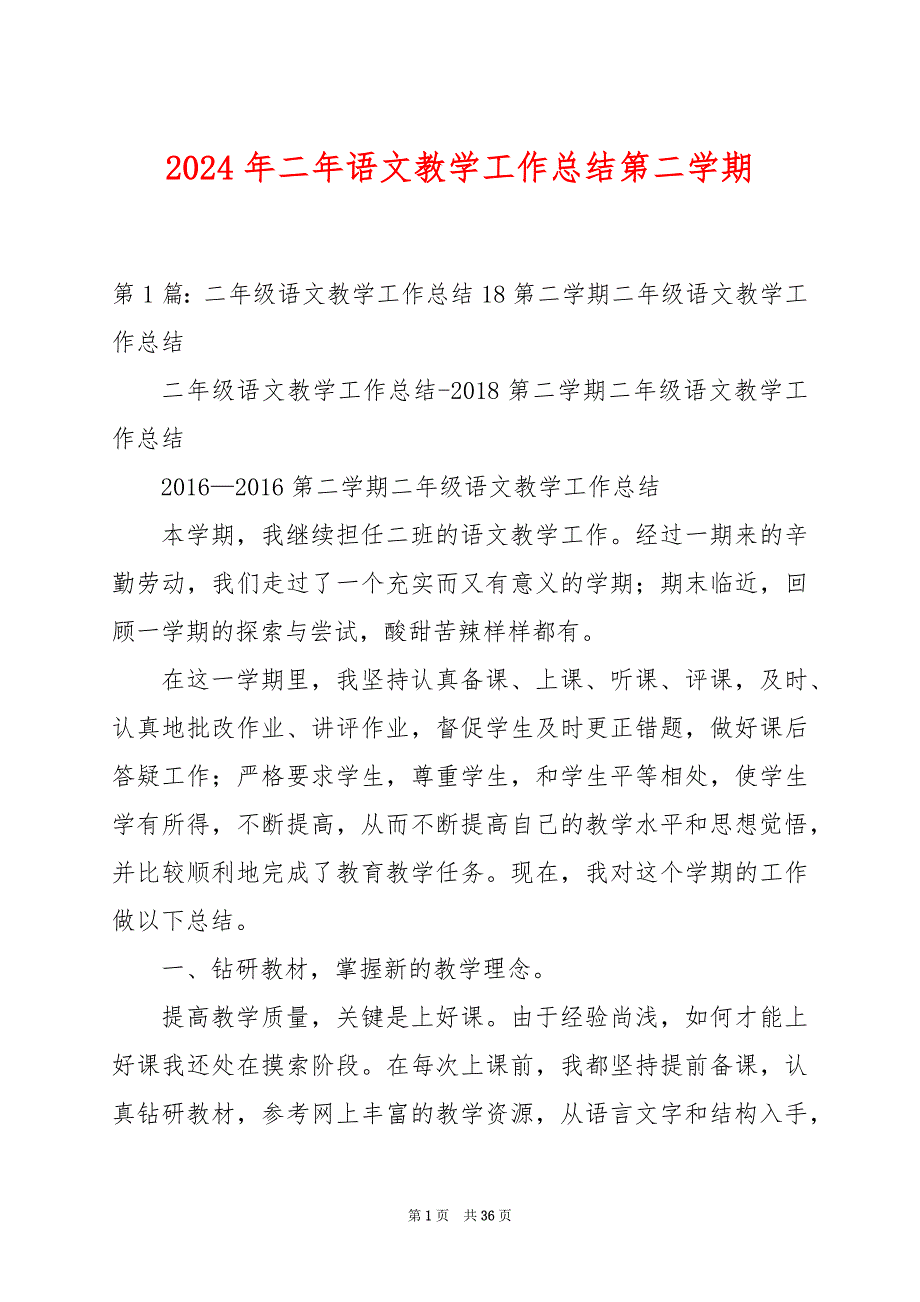 2024年二年语文教学工作总结第二学期
第1篇：二年级语文教学工作总结18第二学期二年级语文教学工
作总结
二年级语文教学工作总结-2018第二学期二年级语文教学工
作总结
2016—2016第二学期二年级语文教学工作总结
本学期，我继续担任二班的语文教学工作。经过一期来的辛
勤劳动，我们走过了一个充实而又有意义的学期；期末临近，回
顾一学期的探索与尝试，酸甜苦辣样样都有。
在这一学期里，我坚持认真备课、上课、听课、评课，及时、
认真地批改作业、讲评作业，督促学生及时更正错题，做好课后
答疑工作；严格要求学生，尊重学生，和学生平等相处，使学生
学有所得，不断提高，从而不断提高自己的教学水平和思想觉悟，
并比较顺利地完成了教育教学任务。现在，我对这个学期的工作
做以下总结。
一、钻研教材，掌握新的教学理念。
提高教学质量，关键是上好课。由于经验尚浅，如何才能上
好课我还处在摸索阶段。在每次上课前，我都坚持提前备课，认
真钻研教材，参考网上丰富的教学资源，从语言文字和结构入手，
第1页 共36页